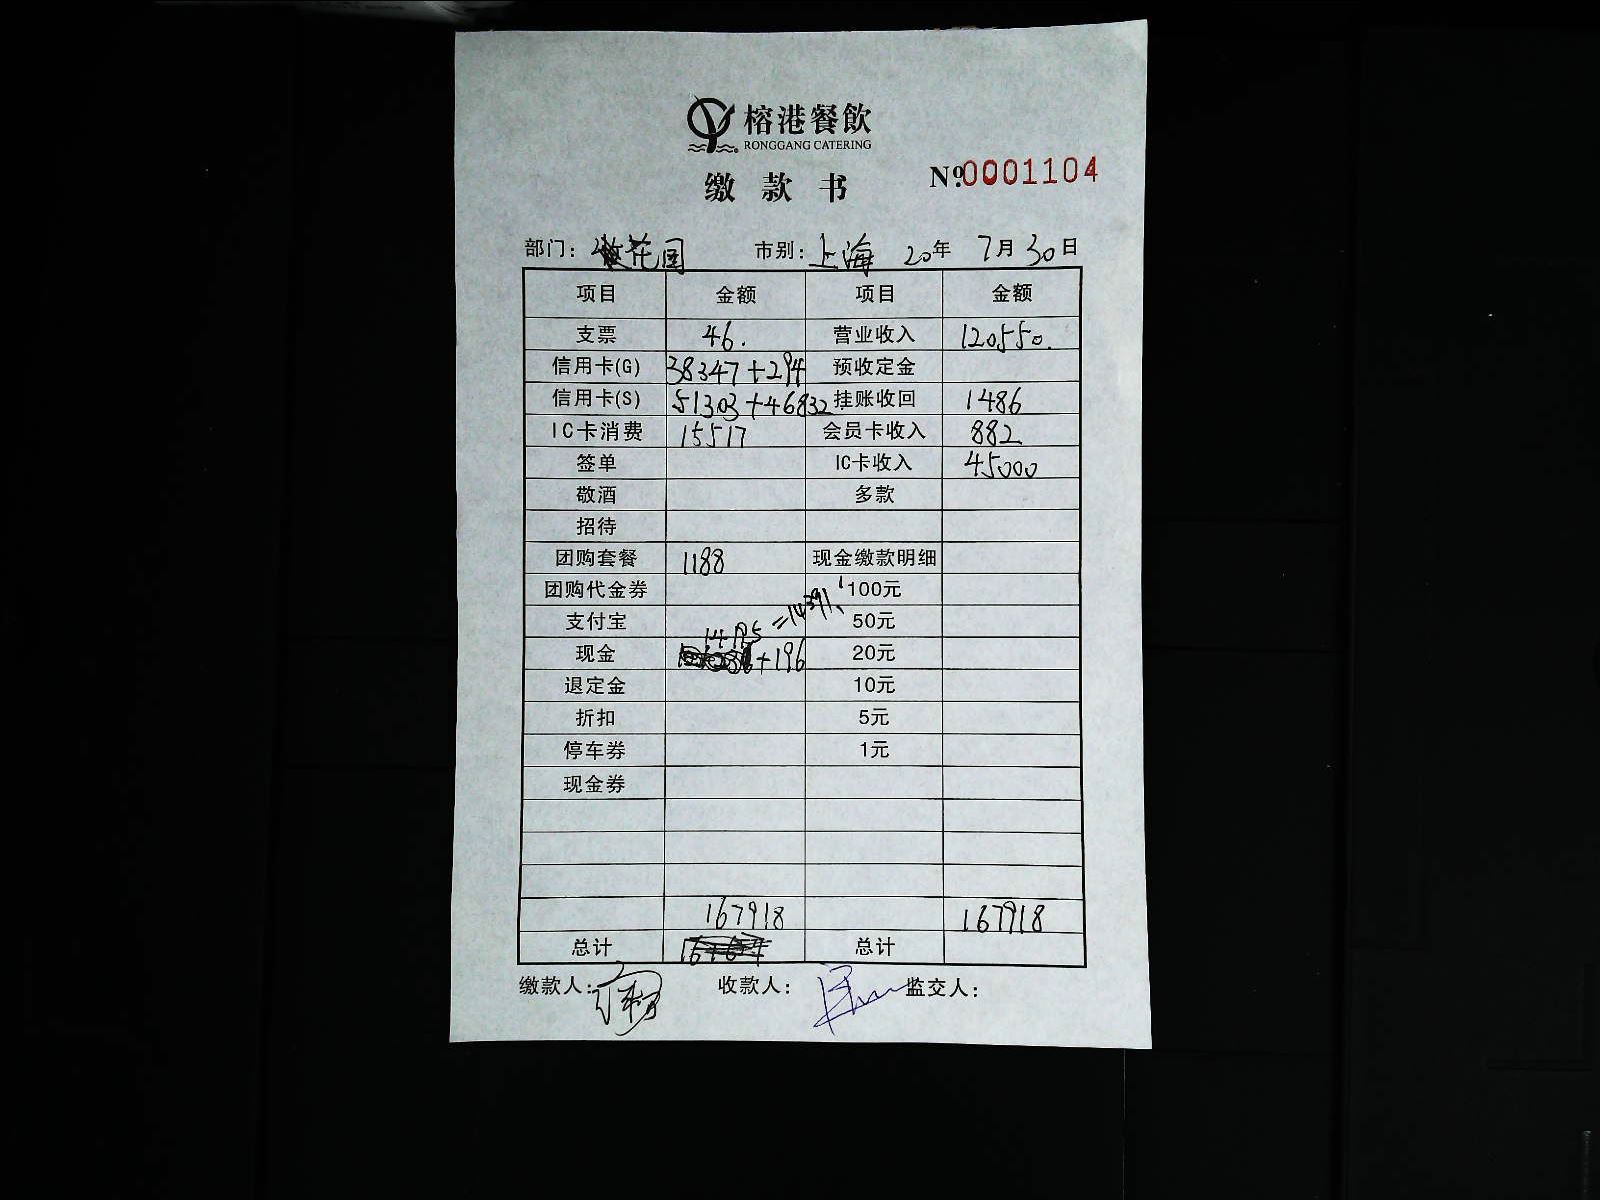 榕港餐飲
RONGGANG CATERING
缴款书
№0001104
部门: 花园 市别: 上海 20年 7月30日
项目 金额 项目 金额
支票 46. 营业收入 120550.
信用卡(G) 38347+294 预收定金
信用卡(S) 51303+46832 挂账收回 1486
IC卡消费 15517 会员卡收入 882
签单 IC卡收入 45000
敬酒 多款
招待
团购套餐 1188 现金缴款明细
团购代金券 100元
支付宝 =14391 50元
14195
现金 +196 20元
退定金 10元
折扣 5元
停车券 1元
现金券
167918 167918
总计 总计
缴款人: 收款人: 监交人: